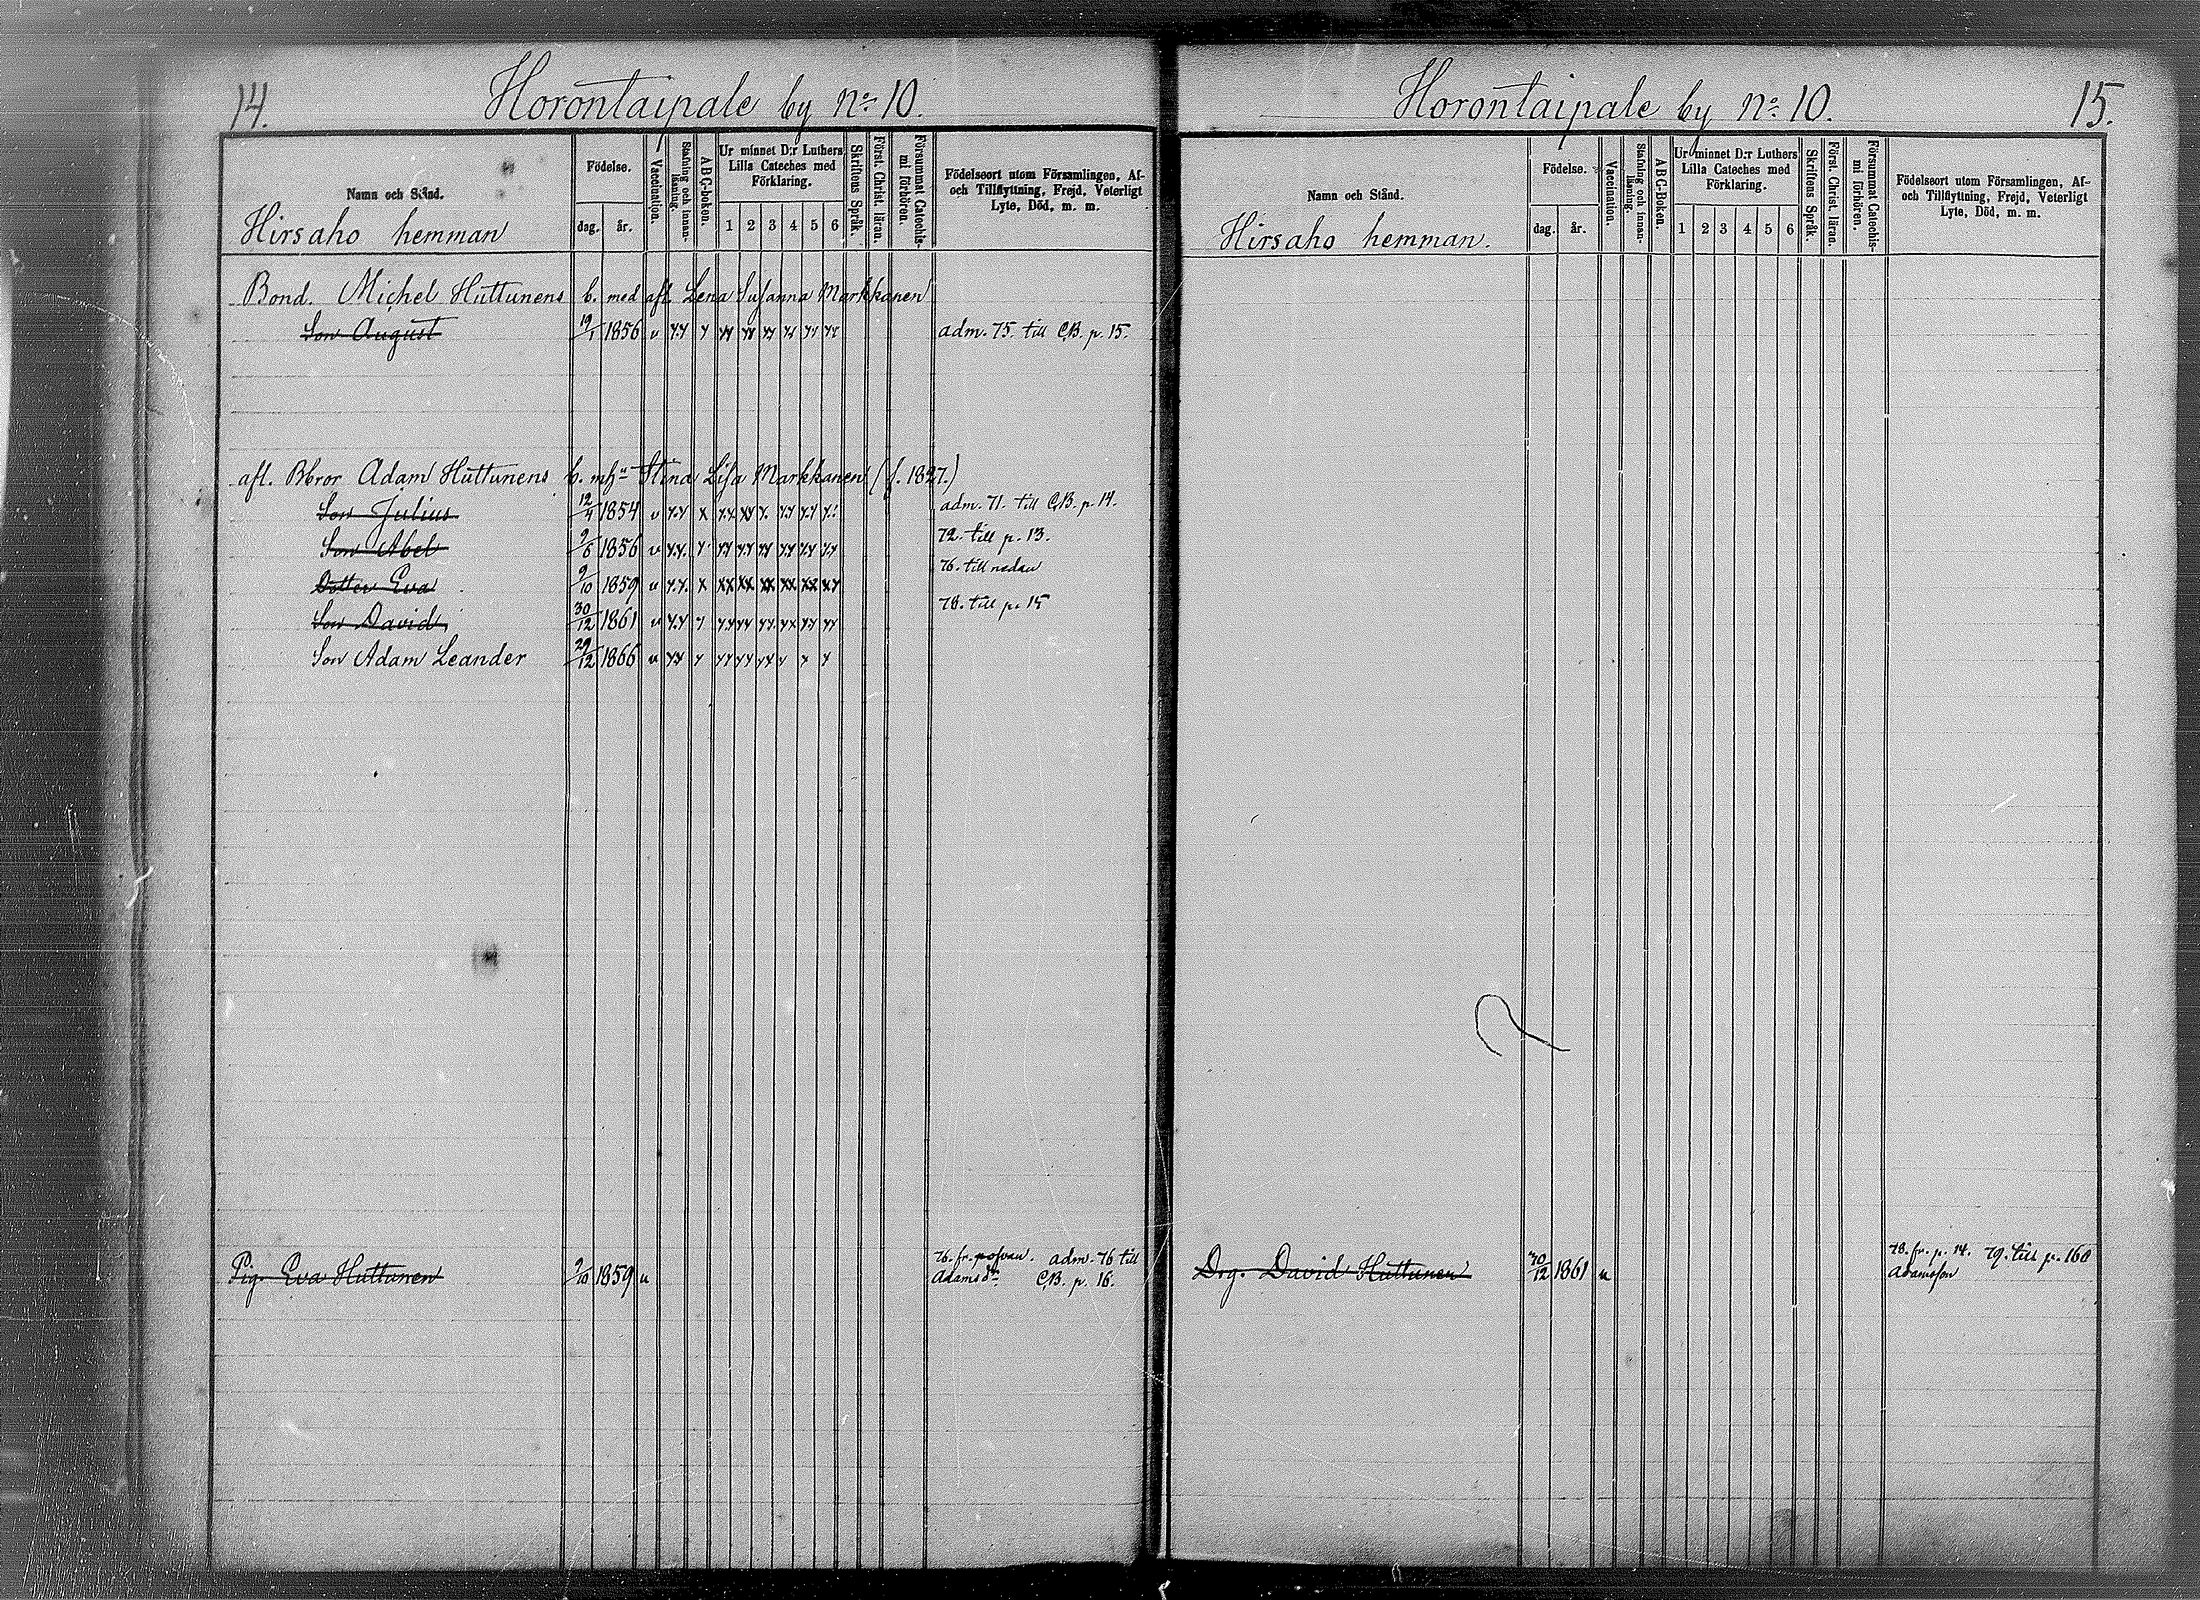 14.
Horontaipale by No 10.
Namn och Stånd.
Födelse.
dag. år.
Vaccination.
Stafning och innanläsning.
ABC-boken.
Ur minnet D:r Luthers Lilla Cateches med Förklaring.
1 2 3 4 5 6
Skriftens Språk.
Först. Christ. läran.
Försummat Catechismi förhören.
Födelseort utom Församlingen, Af- och Tillflyttning, Frejd, Veterligt Lyte, Död, m. m.
Hirsaho hemman
Bond. Michel Huttunens b. med afl. Lena Susanna Markkanen
Son August 19/1 1856 v adm. 75. till C.B. p. 15.
afl. Bbror Adam Huttunens b. mhu Stina Lisa Markkanen (f. 1827.)
Son Julius 12/4 1854 v adm. 71. till C.B. p. 14.
Son Abel 1856 v 72. till p. 13.
Dotter Eva 9/10 1859 v 76. till nedan
Son David 30/12 1861 v 78. till p. 15
Son Adam Leander 29/12 1866 v
Pig. Eva Huttunen 9/10 1859 v 76. fr. adm. 76 till
Adamsdr C.B. p. 16.
Horontaipale by No 10.
15.
Namn och Stånd.
Födelse.
dag. år.
Vaccination.
Stafning och innanläsning.
ABC-Boken.
Ur minnet D:r Luthers Lilla Cateches med Förklaring.
1 2 3 4 5 6
Skriftens Språk.
Först. Christ. läran.
Försummat Catechismi förhören.
Födelseort utom Församlingen, Af- och Tillflyttning, Frejd, Veterligt Lyte, Död, m. m.
Hirsaho hemman.
Drg. David Huttunen 30/12 1861 v 78. fr. p. 14. 79. till p. 160
Adamsson